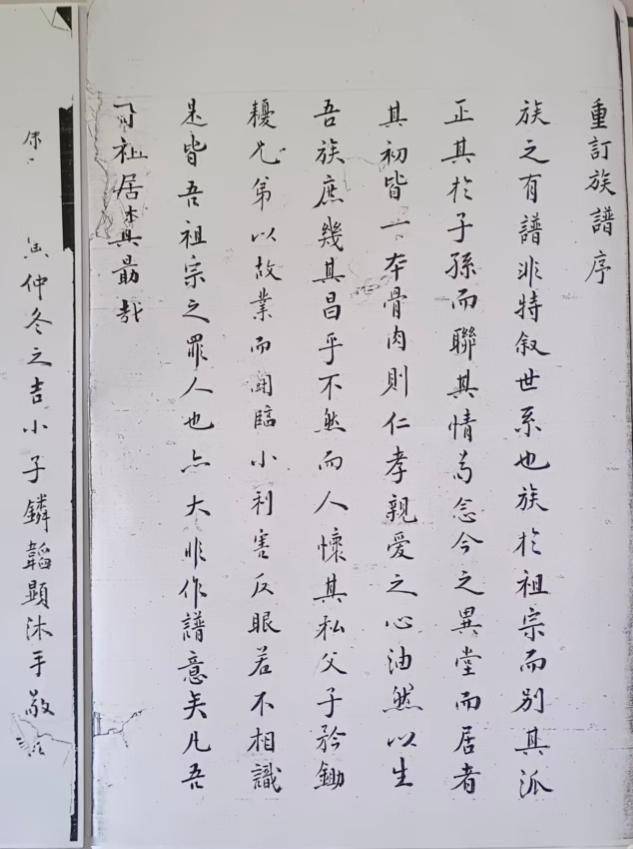 重訂族譜序
族之有譜非特叙世系也族於祖宗而別其派
正其於子孫而聯其情苟念今之異堂而居者
其初皆一本骨肉則仁孝親愛之心油然以生
吾族庶幾其昌乎不然而人懷其私父子矜鋤
耰兄弟以故業而鬩臨小利害反眼若不相識
是皆吾祖宗之罪人也亦大非作譜意矣凡吾
祖居其勗哉
仲冬之吉小子鏻韜顯沐手敬